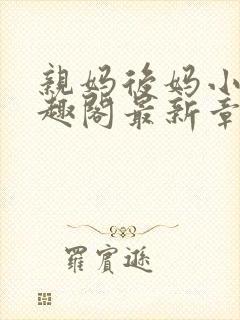 親妈後妈小
趣閣最新章
羅賓遜